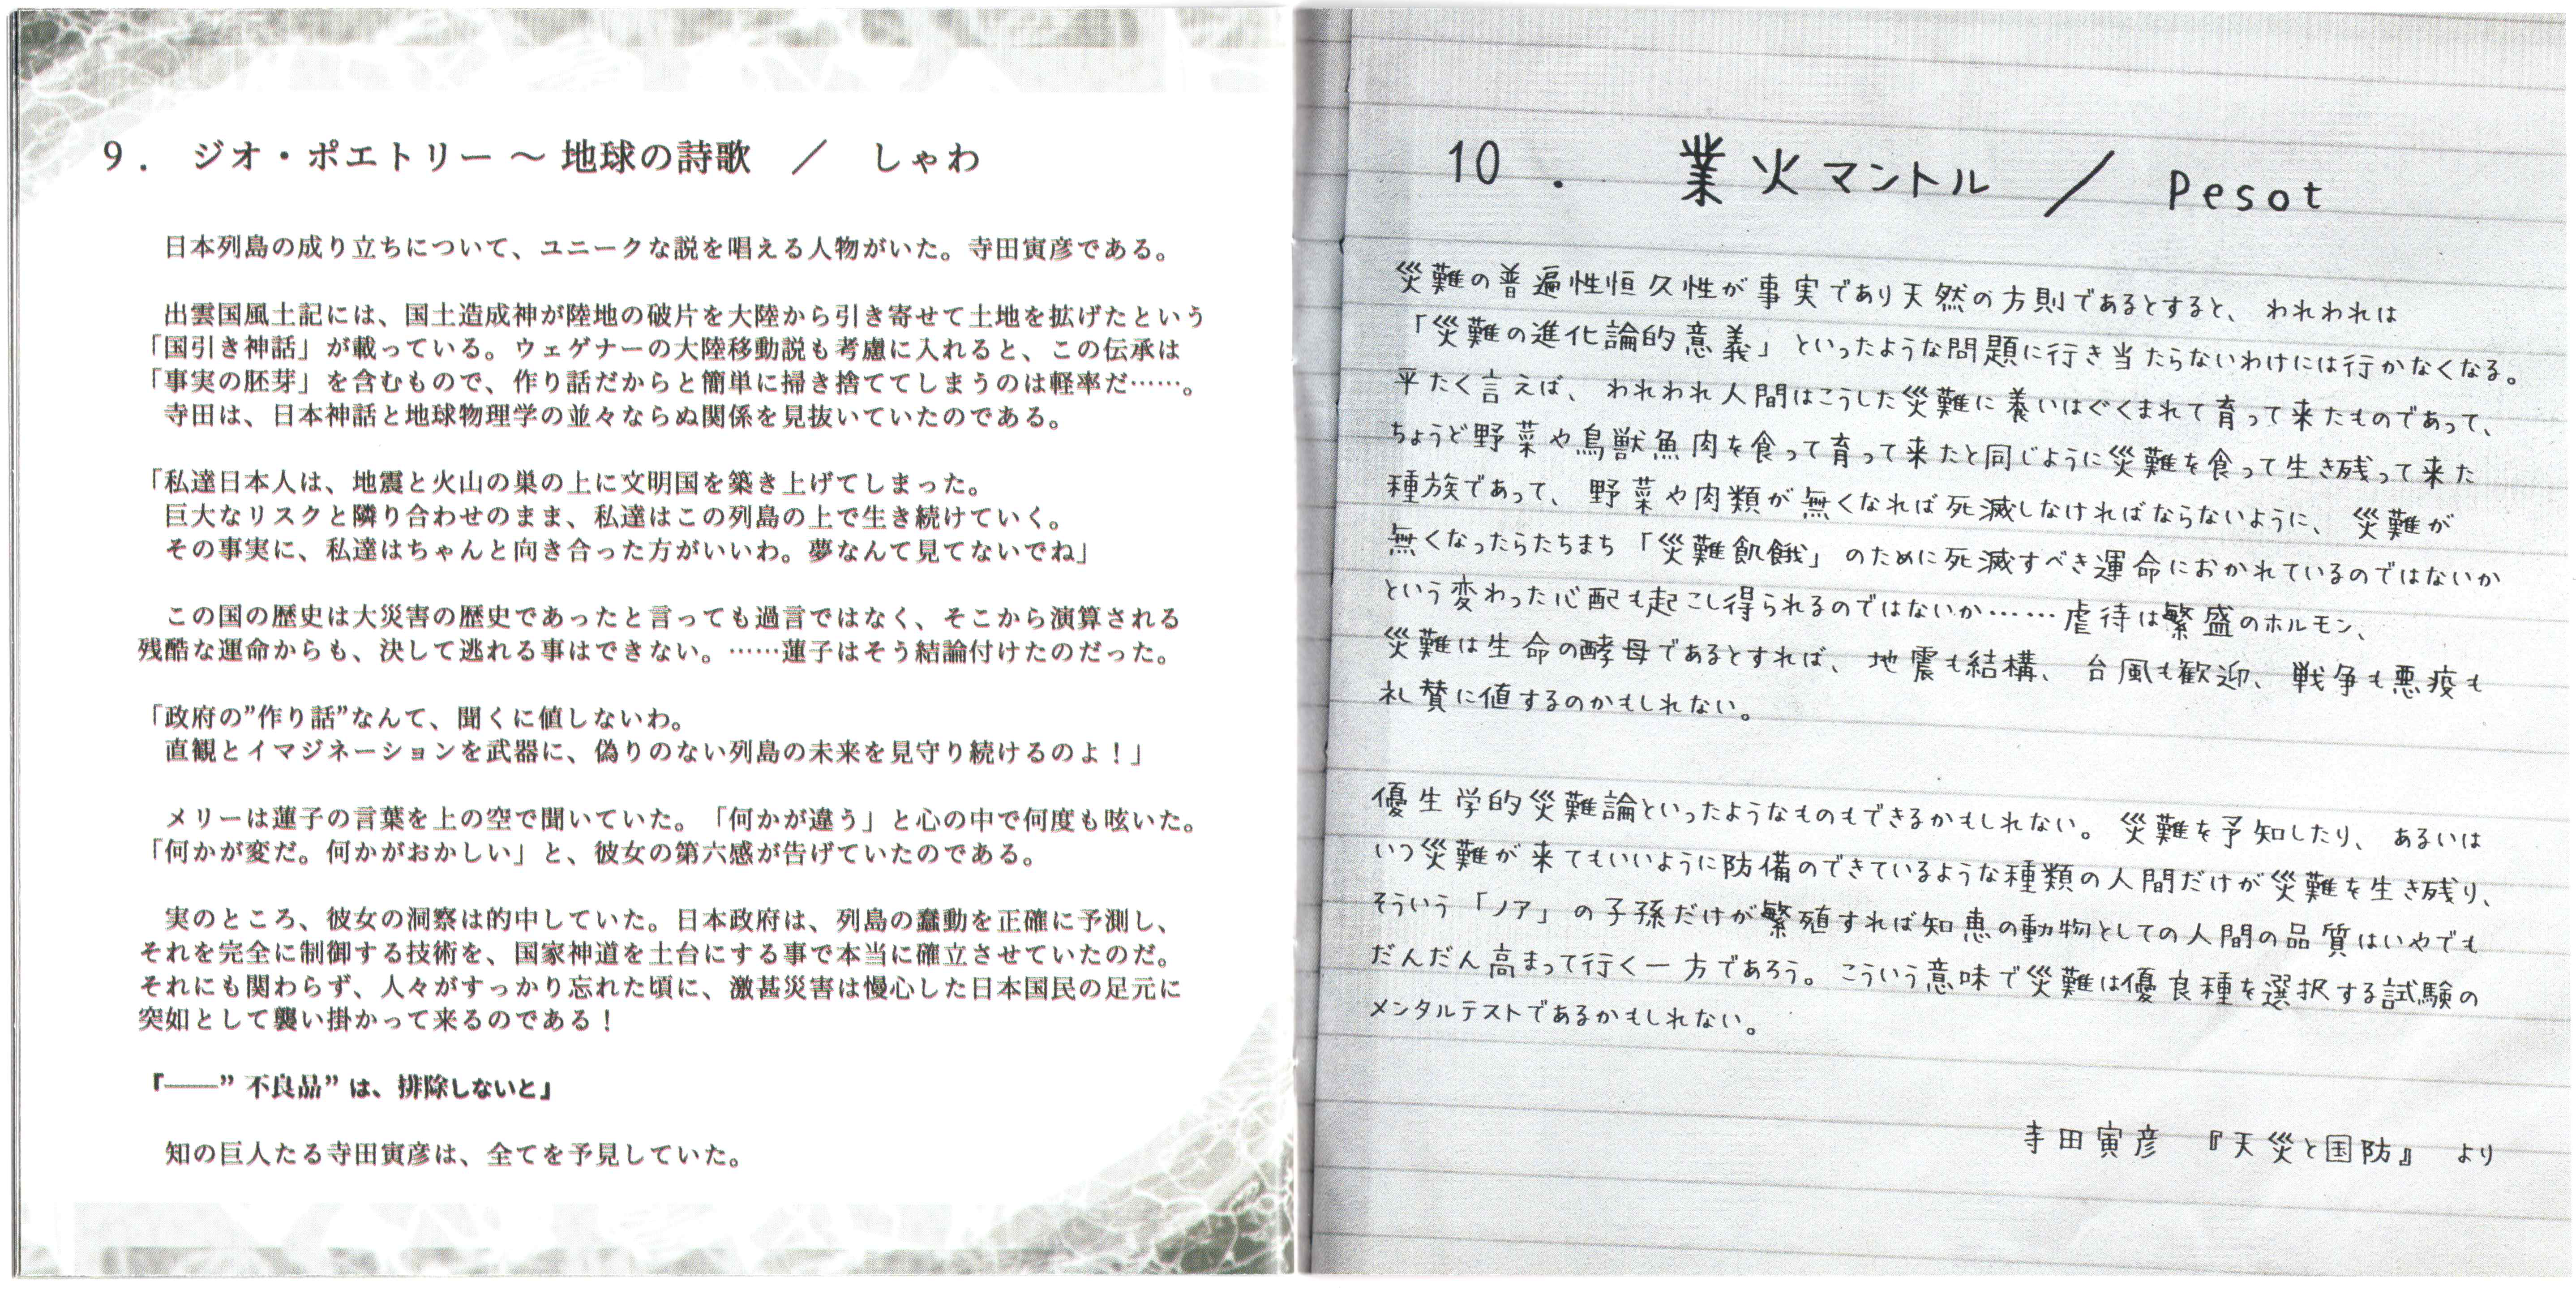 9． ジオ・ポエトリー ～ 地球の詩歌　／　しゃわ
日本列島の成り立ちについて、ユニークな説を唱える人物がいた。寺田寅彦である。
出雲国風土記には、国土造成神が陸地の破片を大陸から引き寄せて土地を拡げたという
「国引き神話」が載っている。ウェゲナーの大陸移動説も考慮に入れると、この伝承は
「事実の胚芽」を含むもので、作り話だからと簡単に掃き捨ててしまうのは軽率だ……。
寺田は、日本神話と地球物理学の並々ならぬ関係を見抜いていたのである。
「私達日本人は、地震と火山の巣の上に文明国を築き上げてしまった。
巨大なリスクと隣り合わせのまま、私達はこの列島の上で生き続けていく。
その事実に、私達はちゃんと向き合った方がいいわ。夢なんて見てないでね」
この国の歴史は大災害の歴史であったと言っても過言ではなく、そこから演算される
残酷な運命からも、決して逃れる事はできない。……蓮子はそう結論付けたのだった。
「政府の”作り話”なんて、聞くに値しないわ。
直観とイマジネーションを武器に、偽りのない列島の未来を見守り続けるのよ！」
メリーは蓮子の言葉を上の空で聞いていた。「何かが違う」と心の中で何度も呟いた。
「何かが変だ。何かがおかしい」と、彼女の第六感が告げていたのである。
実のところ、彼女の洞察は的中していた。日本政府は、列島の蠢動を正確に予測し、
それを完全に制御する技術を、国家神道を土台にする事で本当に確立させていたのだ。
それにも関わらず、人々がすっかり忘れた頃に、激甚災害は慢心した日本国民の足元に
突如として襲い掛かって来るのである！
『――”不良品”は、排除しないと』
知の巨人たる寺田寅彦は、全てを予見していた。
10． 業火マントル ／ Pesot
災難の普遍性恒久性が事実であり天然の方則であるとすると、われわれは
「災難の進化論的意義」といったような問題に行き当たらないわけには行かなくなる。
平たく言えば、われわれ人間はこうした災難に養いはぐくまれて育って来たものであって、
ちょうど野菜や鳥獣魚肉を食って育って来たと同じように災難を食って生き残って来た
種族であって、野菜や肉類が無くなれば死滅しなければならないように、災難が
無くなったらたちまち「災難飢餓」のために死滅すべき運命におかれているのではないか
という変わった心配も起こし得られるのではないか……虐待は繁盛のホルモン、
災難は生命の酵母であるとすれば、地震も結構、台風も歓迎、戦争も悪疫も
礼賛に値するのかもしれない。
優生学的災難論といったようなものもできるかもしれない。災難を予知したり、あるいは
いつ災難が来てもいいように防備のできているような種類の人間だけが災難を生き残り、
そういう「ノア」の子孫だけが繁殖すれば知恵の動物としての人間の品質はいやでも
だんだん高まって行く一方であろう。こういう意味で災難は優良種を選択する試験の
メンタルテストであるかもしれない。
寺田寅彦 『天災と国防』 より